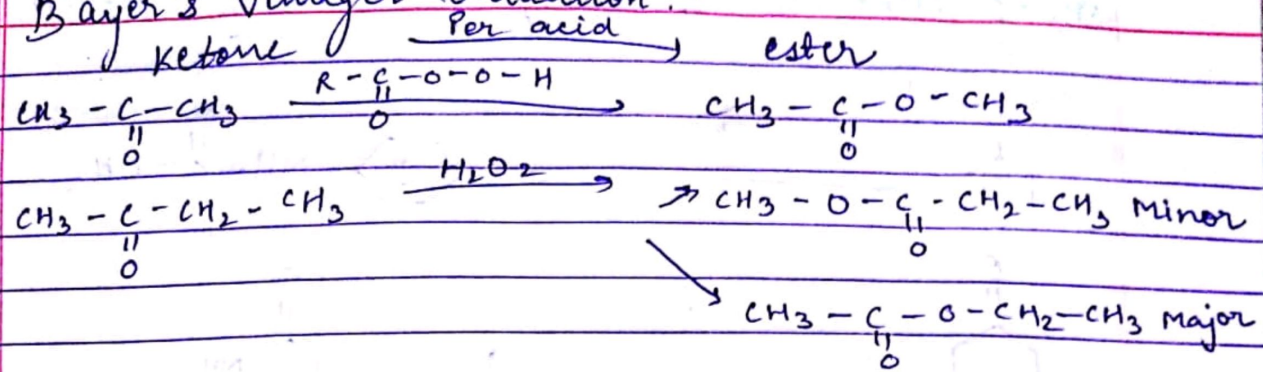 Bayer's
Ketone Per acid → ester
CH3 - C - CH3 R - C - O - O - H → CH3 - C - O - CH3
|| || ||
O O O
CH3 - C - CH2 - CH3 H2O2 → ↗ CH3 - O - C - CH2 - CH3 Minor
|| ||
O O
↘ CH3 - C - O - CH2 - CH3 Major
||
O